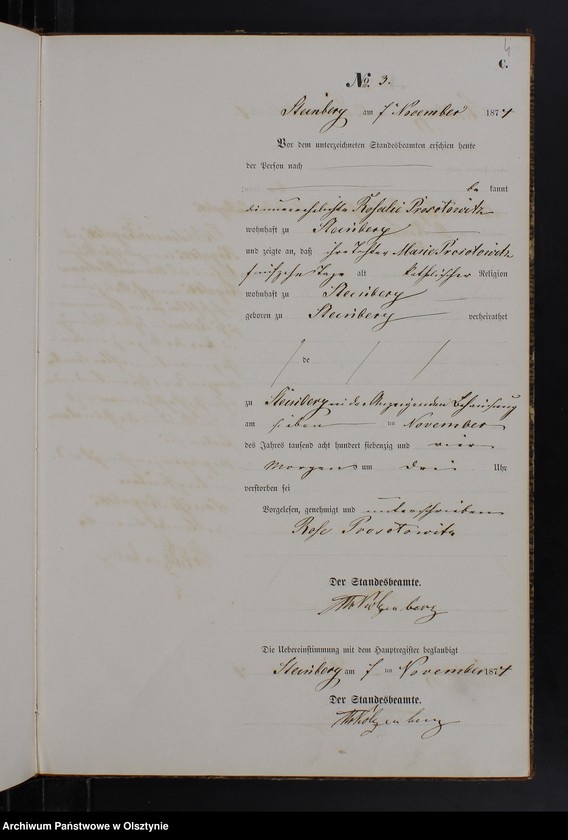 4
C.
No 3.
Steinberg am 7 November 1874
Vor dem unterzeichneten Standesbeamten erschien heute
der Person nach
be kannt
die unverehelichte Rosalie Prosotowitz
wohnhaft zu Steinberg
und zeigte an, daß ihre Tochter Marie Prosotowitz
fünfzehn Tage alt katholischer Religion
wohnhaft zu Steinberg
geboren zu Steinberg verheirathet
de
zu Steinberg in der Anzeigenden Behausung
am sieben ten November
des Jahres tausend acht hundert siebenzig und vier
Morgens um drei Uhr
verstorben sei
Vorgelesen, genehmigt und unterschrieben
Rose Prosotowitz
Der Standesbeamte.
Die Uebereinstimmung mit dem Hauptregister beglaubigt
Steinberg am 7 ten November 1874
Der Standesbeamte.
Archiwum Państwowe w Olsztynie